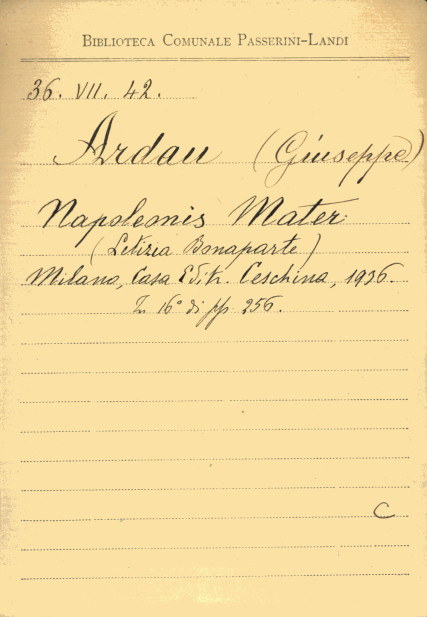 BIBLIOTECA COMUNALE PASSERINI-LANDI
36. VII. 42.
Ardau (Giuseppe)
Napoleonis Mater
(Letizia Bonaparte)
Milano, Casa Edit. Ceschina, 1936.
In 16° di pp 256.
C